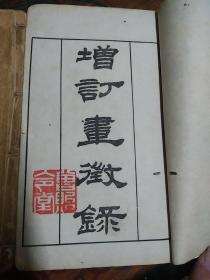 增訂畫徵錄